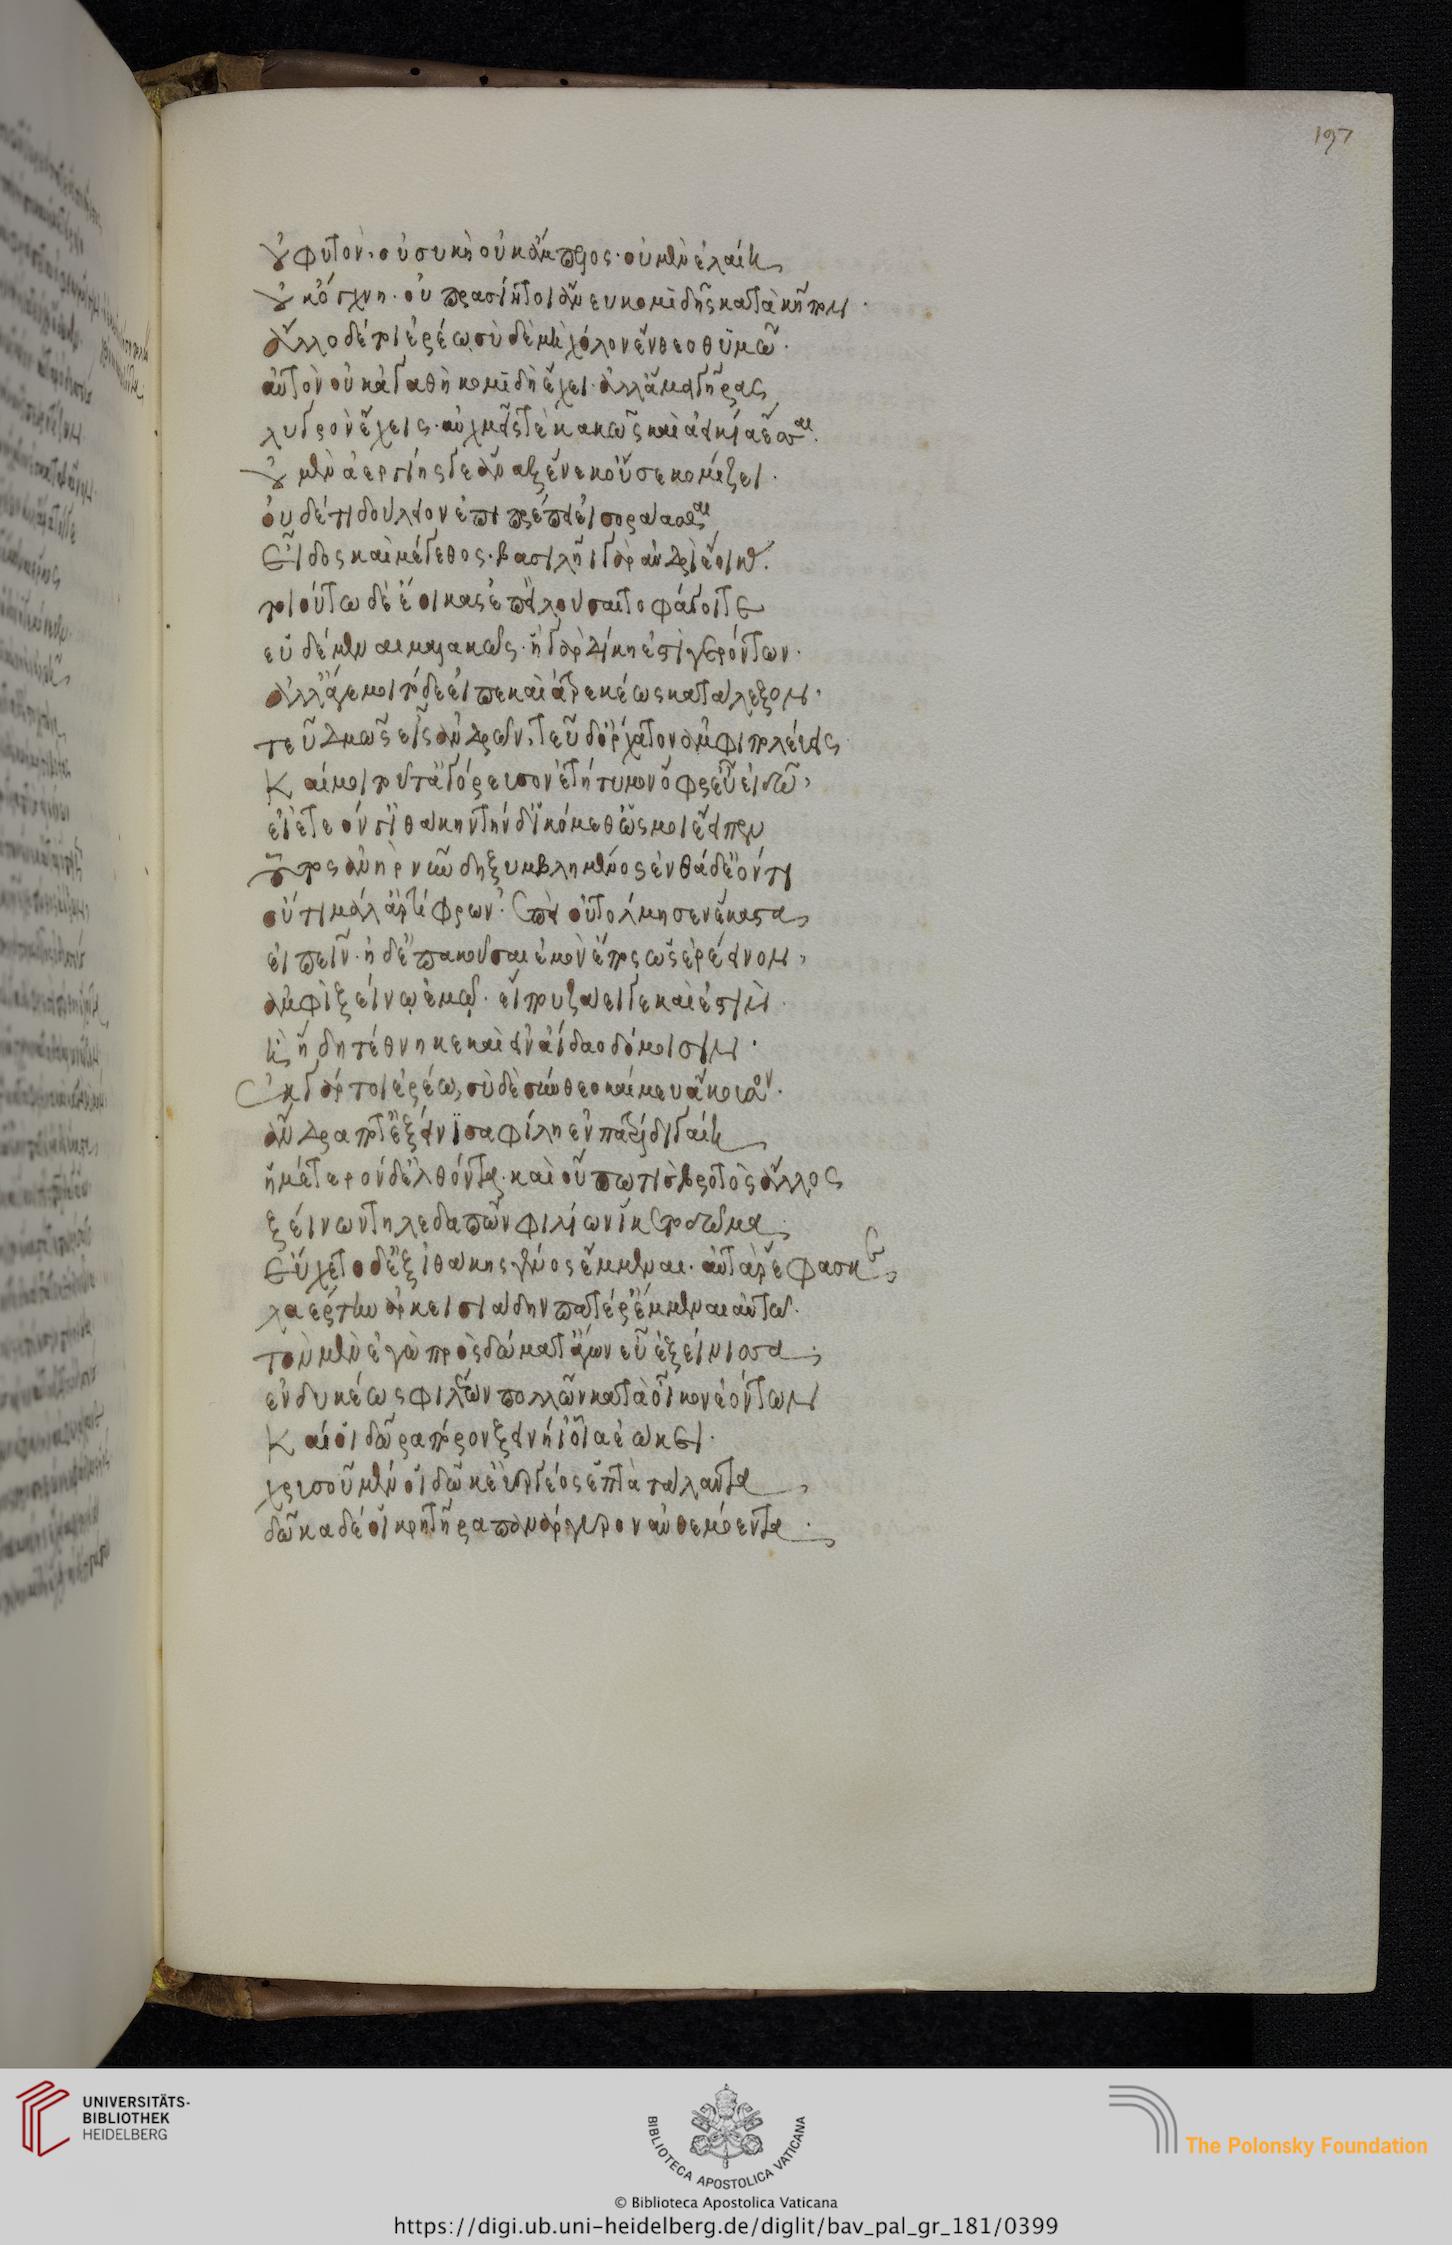 οὐ φυτὸν· οὐ συκὴ οὐκ ἄμπελος· οὐ μὲν ἐλαίη
οὐκ ὄγχνη· οὐ πρασίη τοι ἄνευ κομιδῆς κατὰ κῆπον·
ἄλλο δέ τοι ἐρέω, σὺ δὲ μὴ χόλον ἔνθεο θυμῶ·
αὐτὸν οὐκ ἀγαθὴ κομιδὴ ἔχει· ἀλλ' ἅμα γῆρας
λυγρὸν ἔχεις· αὐχμεῖς τὲ κακῶς καὶ ἀεικέα ἕσσαι.
οὐ μὲν ἀεργίης γε ἄναξ ἕνεκ' οὔ σε κομίζει·
οὐδέ τι δούλειον ἐπιπρέπει εἰσοράασθαι
εἶδος καὶ μέγεθος· βασιλῆι γὰρ ἀνδρὶ ἔοικας.
τοιούτω δὲ ἔοικας ἐπεὶ λούσαιτο φάγοι τε
εὑδέμεναι μαλακῶς· ἡ γὰρ δίκη ἐστὶ γερόντων·
ἀλλ' ἄγε μοι τόδε εἰπὲ καὶ ἀτρεκέως κατάλεξον·
τεῦ δμῶς εἶς ἀνδρῶν, τεῦ δ' ὄρχατον ἀμφιπολεύεις
καί μοι τοῦτ' ἀγόρευσον ἐτήτυμον ὄφρ' εὖ εἰδῶ,
εἰ ἐτεόν γ' ἰθάκην τήνδ' ἱκόμεθ' ὥς μοι ἔειπεν
οὗτος ἀνὴρ νῶν δὴ ξυμβλήμενος ἐνθάδ' ἰόντι
οὔτι μάλ' ἀρτίφρων· ἐπεὶ οὐ τόλμησεν ἕκαστα
εἰπεῖν· ἠδ' ἐπακοῦσαι ἐμὸν ἔπος ὡς ἐρέεινον,
ἀμφὶ ξείνῳ ἐμῷ· εἴ που ζώει γε καὶ ἐστὶν·
ἢ ἤδη τέθνηκε καὶ εἰν ἀίδαο δόμοισιν·
ἐκ γάρ τοι ἐρέω, σὺ δὲ σύνθεο καί μευ ἄκουσον·
ἄνδρα ποτ' ἐξείνισσα φίλη ἐν πατρίδι γαίη
ἡμέτερόνδ' ἐλθόντα· καὶ οὔπω τις βροτὸς ἄλλος
ξείνων τηλεδαπῶν φιλίων ἵκετο δῶμα·
εὔχετο δ' ἐξ ἰθάκης γένος ἔμμεναι· αὐτὰρ ἔφασκε
λαέρτην ἀρκεισιάδην πατέρ' ἔμμεναι αὐτῶ·
τὸν μὲν ἐγὼ πρὸς δώματ' ἄγων εὖ ἐξείνισσα·
ἐνδυκέως φιλέων πολλῶν κατὰ οἶκον ἐόντων
καί οἱ δῶρα πόρον ξεινήι' οἷα ἐώκει·
χρυσοῦ μέν οἱ δῶκ' εὐεργέος ἑπτὰ τάλαντα,
δῶκα δέ οἱ κρητῆρα πανάργυρον ἀνθεμόεντα·
197
UNIVERSITÄTS-
BIBLIOTHEK
HEIDELBERG
BIBLIOTECA APOSTOLICA VATICANA
© Biblioteca Apostolica Vaticana
The Polonsky Foundation
https://digi.ub.uni-heidelberg.de/diglit/bav_pal_gr_181/0399